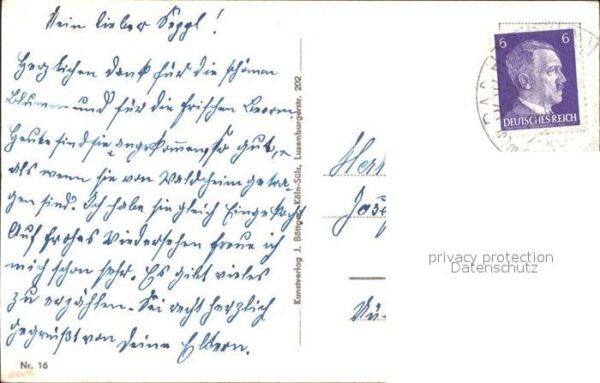 Mein lieber Seppl!
Herzlichen Dank für die schönen
Blumen und für die frischen Beeren.
Heute sind sie angekommen, so gut,
als wenn sie von Waldheim getra-
gen sind. Ich habe sie gleich Eingekocht
Auf frohes Wiedersehen freue ich
mich schon sehr. Es gibt vieles
zu erzählen. Sei recht herzlich
gegrüßt von Deine Eltern.
Nr. 16
Kunstverlag J. Böttger, Köln-Sülz, Luxemburgerstr. 202
6 6
DEUTSCHES REICH
Herr
Jose
privacy protection
Datenschutz